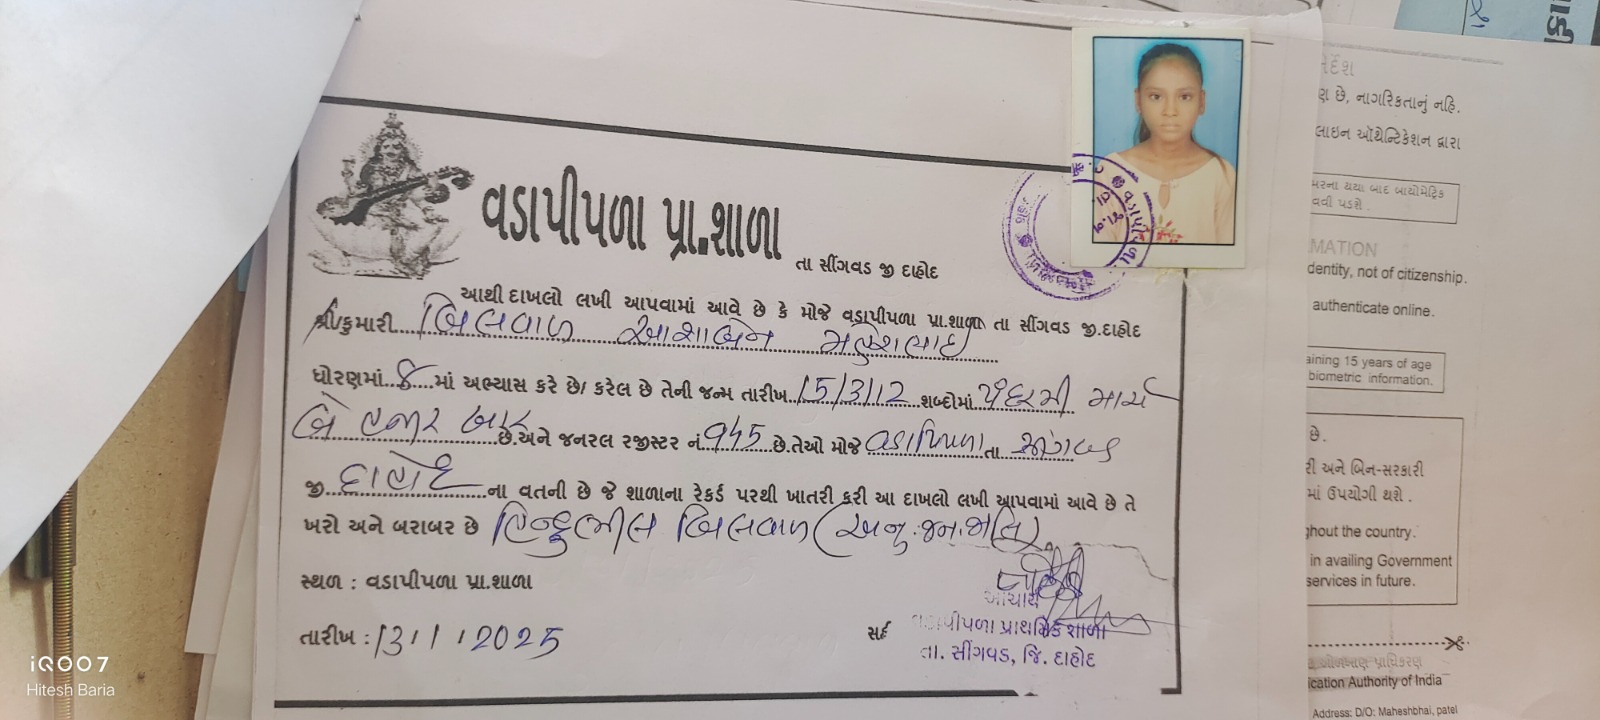 વડાપીપળા પ્રા.શાળા
તા સીંગવડ જી દાહોદ
આથી દાખલો લખી આપવામાં આવે છે કે મોજે વડાપીપળા પ્રા.શાળા તા સીંગવડ જી.દાહોદ
શ્રી/કુમારી બિલવાળ આશાબેન મહેશભાઇ
ધોરણમાં માં અભ્યાસ કરે છે/ કરેલ છે તેની જન્મ તારીખ 15/3/12 શબ્દોમાં પંદરમી માર્ચ
બે હજાર બાર છે.અને જનરલ રજીસ્ટર નં 945 છે.તેઓ મોજે વડાપિપળા તા સીંગવડ
જી દાહોદ ના વતની છે જે શાળાના રેકર્ડ પરથી ખાતરી કરી આ દાખલો લખી આપવામાં આવે છે તે
ખરો અને બરાબર છે હિન્દુ ભીલ બિલવાળ (અનુ.જન.જાતિ)
સ્થળ : વડાપીપળા પ્રા.શાળા
તારીખ : 13/1/2025
સહી
આચાર્ય
વડાપીપળા પ્રાથમિક શાળા
તા. સીંગવડ, જિ. દાહોદ
છે, નાગરિકતાનું નહિ.
ઑથેન્ટિકેશન દ્વારા
થયા બાદ બાયોમેટ્રિક
પડશે.
MATION
dentity, not of citizenship.
authenticate online.
aining 15 years of age
biometric information.
છે.
રી અને બિન-સરકારી
માં ઉપયોગી થશે.
ghout the country.
in availing Government
services in future.
ication Authority of India
Address: D/O: Maheshbhai, patel
iQOO7
Hitesh Baria